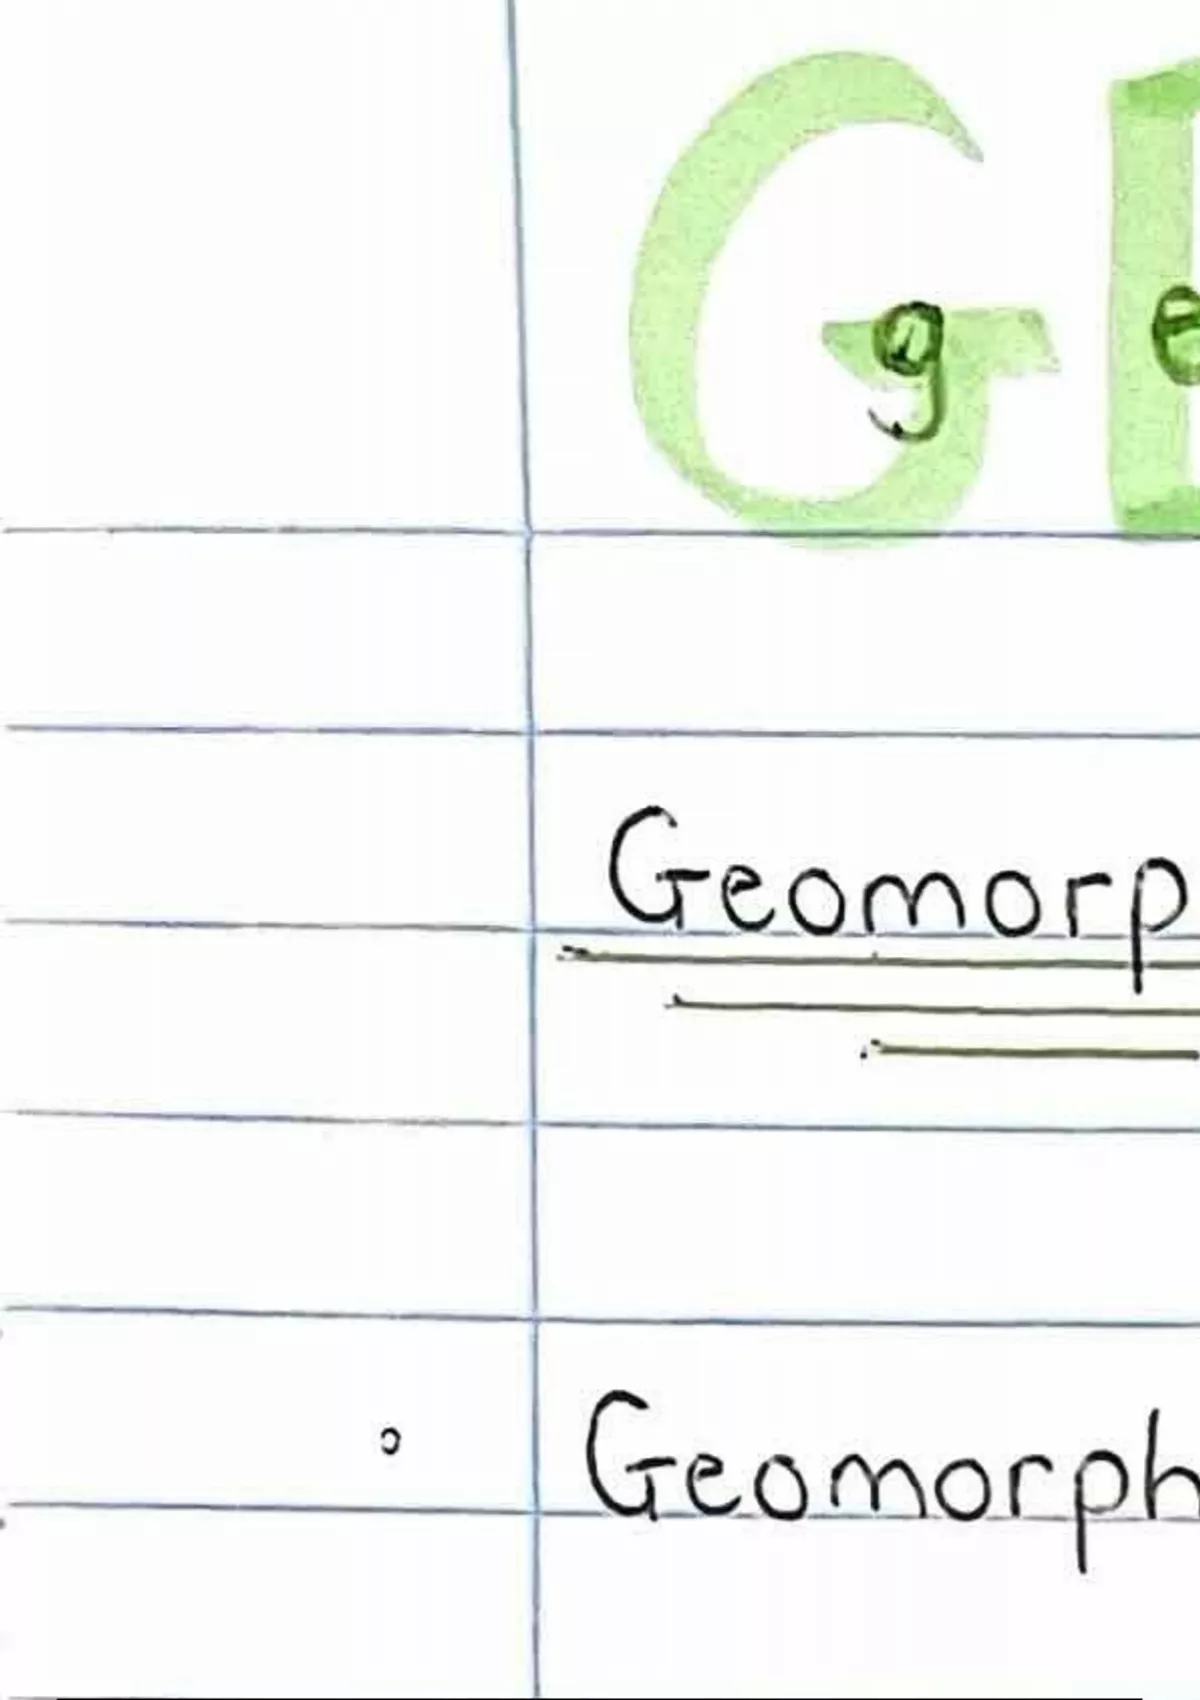 G
g e
Geomorp
Geomorph